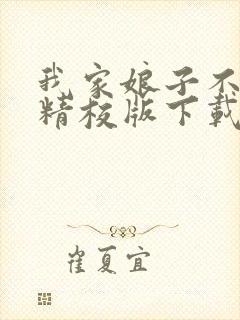 我家娘子不
精校版下载
崔夏宜